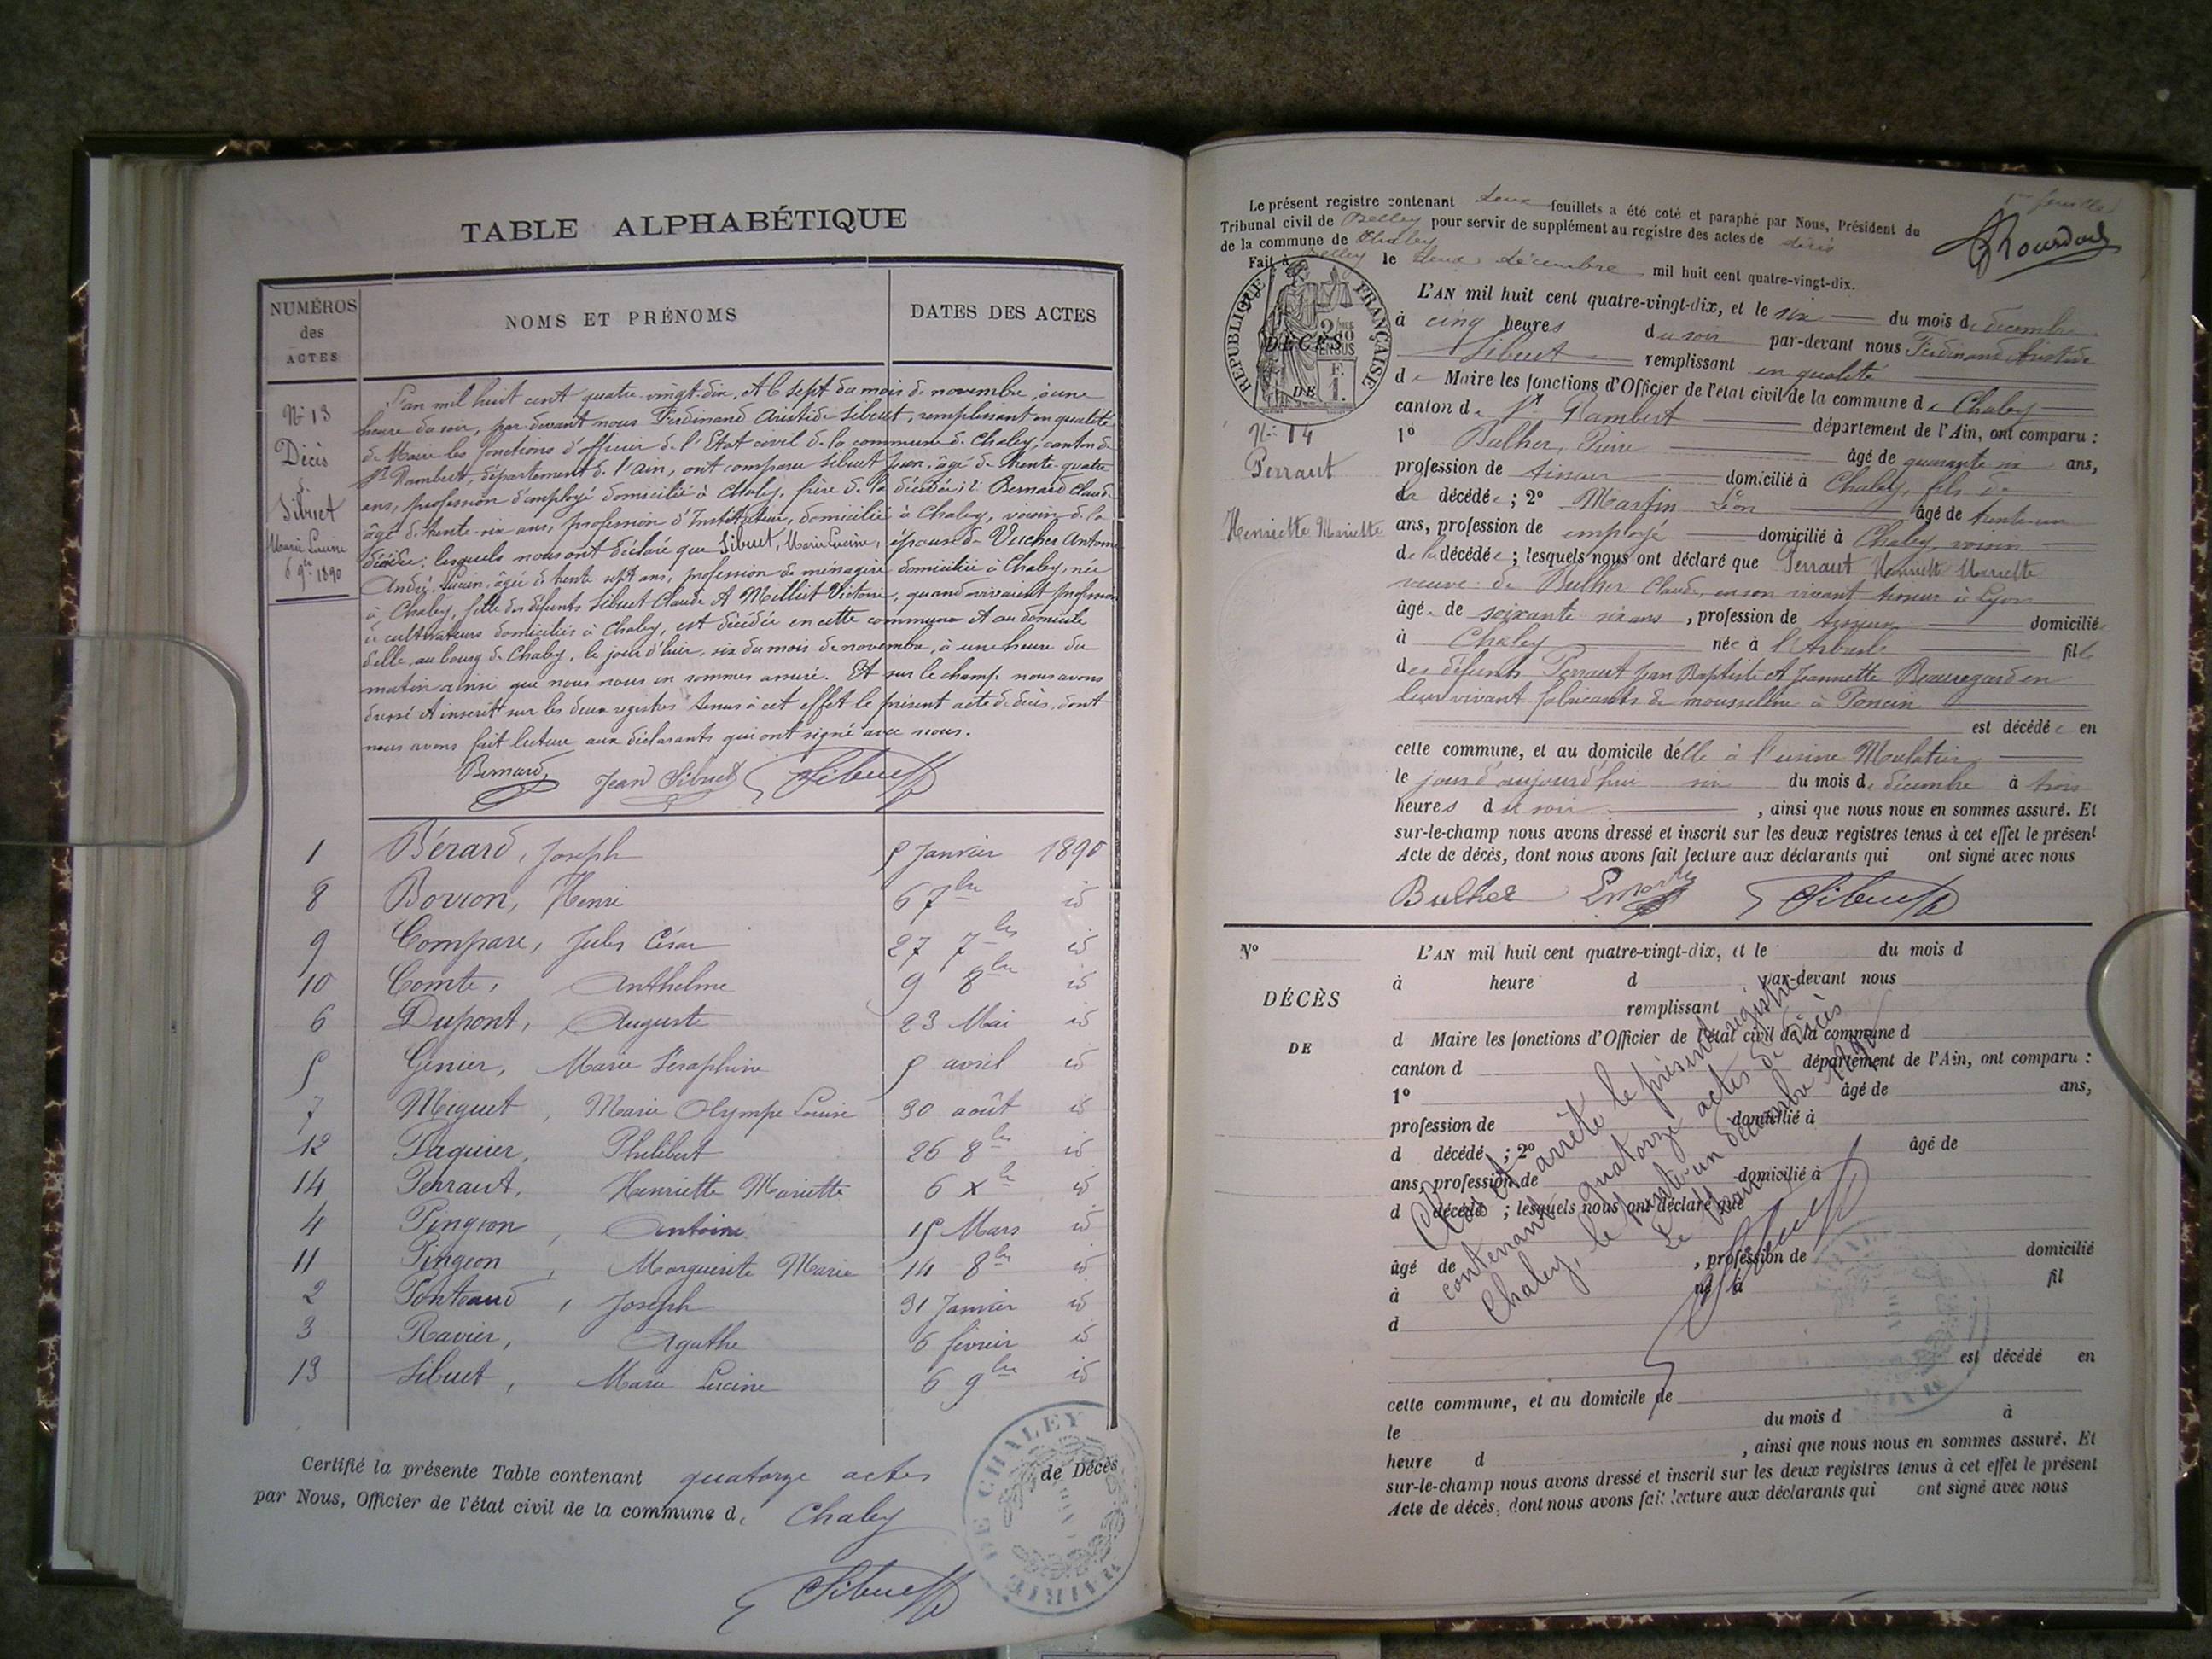 TABLE ALPHABÉTIQUE
NUMÉROS
des
ACTES
NOMS ET PRÉNOMS
DATES DES ACTES
No 13
Décès
de
Sibuet
Marie Lucine
6 9bre 1890
L'an mil huit cent quatre-vingt-dix, et le sept du mois de novembre, à une
heure du soir, par devant nous Ferdinand Aristide Sibuet, remplissant en qualité
de Maire les fonctions d'officier de l'Etat civil de la commune de Chaley, canton de
St Rambert, département de l'Ain, ont comparu Sibuet Jean, âgé de trente-quatre
ans, profession d'employé domicilié à Chaley, frère de la décédée; 2° Bernard Claude
âgé de trente-six ans, profession d'Instituteur, domicilié à Chaley, voisin de la
décédée; lesquels nous ont déclaré que Sibuet, Marie Lucine, épouse de Vercher Antoine
André Lucien, âgée de trente sept ans, profession de ménagère domiciliée à Chaley, née
à Chaley, fille des défunts Sibuet Claude et Milliet Victoire, quand vivaient profession
de cultivateurs domiciliés à Chaley, est décédée en cette commune et au domicile
d'elle, au bourg de Chaley, le jour d'hier, six du mois de novembre, à une heure du
matin ainsi que nous nous en sommes assuré. Et sur le champ nous avons
dressé et inscrit sur les deux registres tenus à cet effet le présent acte de décès, dont
nous avons fait lecture aux déclarants qui ont signé avec nous.
Bernard Jean Sibuet Sibuet
1 Bérard, Joseph 5 Janvier 1890
8 Bovron, Henri 6 7bre id
9 Compare, Jules César 27 7bre id
10 Comte, Anthelme 9 8bre id
6 Dupont, Auguste 23 Mai id
5 Genier, Marie Séraphine 5 avril id
7 Miguet, Marie Olympe Louise 30 août id
12 Paquier, Philibert 26 8bre id
14 Perraut, Henriette Mariette 6 Xbre id
4 Pingeon, Antoine 15 Mars id
11 Pingeon, Marguerite Marie 14 8bre id
2 Ponteaud, Joseph 31 Janvier id
3 Ravier, Agathe 6 février id
13 Sibuet, Marie Lucine 6 9bre id
Certifié la présente Table contenant quatorze actes de Décès
par Nous, Officier de l'état civil de la commune de Chaley
Sibuet
MAIRIE DE CHALEY
1er feuillet
Le présent registre contenant deux feuillets a été coté et paraphé par Nous, Président du
Tribunal civil de Belley pour servir de supplément au registre des actes de décès
de la commune de Chaley
Fait à Belley le deux décembre mil huit cent quatre-vingt-dix.
RÉPUBLIQUE FRANÇAISE
DÉCÈS
DE
No 14
Perraut
Henriette Mariette
L'AN mil huit cent quatre-vingt-dix, et le six du mois de décembre
à cinq heures du soir par-devant nous Ferdinand Aristide
Sibuet remplissant en qualité
de Maire les fonctions d'Officier de l'état civil de la commune de Chaley
canton de St Rambert département de l'Ain, ont comparu :
1° Bulher, Pierre âgé de quarante six ans,
profession de tisseur domicilié à Chaley, fils de
la décédée ; 2° Martin Léon âgé de trente-un
ans, profession de employé domicilié à Chaley, voisin
de la décédée ; lesquels nous ont déclaré que Perraut Henriette Mariette
veuve de Bulher Claude, en son vivant tisseur à Lyon
âgée de soixante six ans, profession de domiciliée
à Chaley née à l'Arbresle fille
des défunts Perraut Jean Baptiste et Jeannette Beauregard en
leur vivant fabricants de mousseline à Poncin
est décédée en
cette commune, et au domicile d'elle à l'usine Moulatier
le jour d'aujourd'hui six du mois de décembre à trois
heures du soir, ainsi que nous nous en sommes assuré. Et
sur-le-champ nous avons dressé et inscrit sur les deux registres tenus à cet effet le présent
Acte de décès, dont nous avons fait lecture aux déclarants qui ont signé avec nous
Bulher Sibuet
No
DÉCÈS
DE
L'AN mil huit cent quatre-vingt-dix, et le du mois d
à heure d par-devant nous
remplissant
d Maire les fonctions d'Officier de l'état civil de la commune d
canton d département de l'Ain, ont comparu :
1° âgé de ans,
profession de domicilié à
d décédé ; 2° âgé de
ans, profession de domicilié à
d décédé ; lesquels nous ont déclaré que
âgé de , profession de domicilié
à né à fil
d
est décédé en
cette commune, et au domicile de
le du mois d à
heure d , ainsi que nous nous en sommes assuré. Et
sur-le-champ nous avons dressé et inscrit sur les deux registres tenus à cet effet le présent
Acte de décès, dont nous avons fait lecture aux déclarants qui ont signé avec nous
Clos et arrêté le présent registre
contenant quatorze actes de décès
Chaley, le trente-un décembre 1890
Le Maire
Sibuet